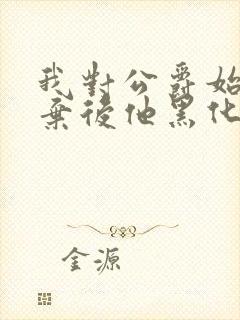 我對公爵始
棄後他黑化
金源